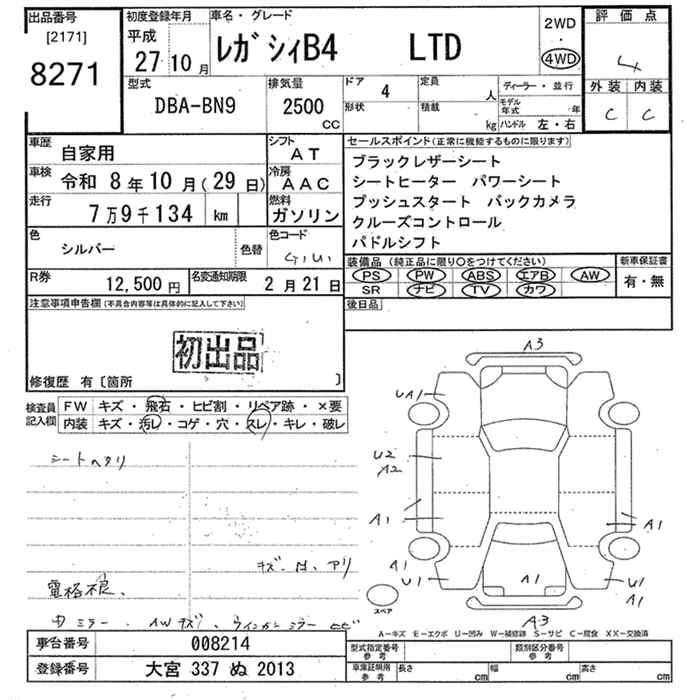 出品番号
[2171]
8271
初度登録年月
平成
27 10 月
車名・グレード
レガシィB4 LTD
2WD
・
4WD
評価点
4
外装 内装
C C
型式
DBA-BN9
排気量
2500
CC
ドア
4
形状
定員
人
積載
kg
ディーラー・並行
モデル年式 年
ハンドル 左・右
車歴
自家用
シフト
AT
車検
令和 8年10月(29日)
冷房
AAC
走行
7万9千134 km
燃料
ガソリン
色
シルバー
色替
色コード
G1U
R券
12,500円
名変通知期限
2月21日
セールスポイント(正常に機能するものに限ります)
ブラックレザーシート
シートヒーター パワーシート
プッシュスタート バックカメラ
クルーズコントロール
パドルシフト
装備品(純正品に限り○をつけてください)
PS PW ABS エアB AW
SR ナビ TV カワ
新車保証書
有・無
後日品
注意事項申告欄(不具合内容等は具体的に記入して下さい)
初出品
修復歴 有〔箇所 〕
検査員記入欄
FW キズ・飛石・ヒビ割・リペア跡・×要
内装 キズ・汚レ・コゲ・穴・スレ・キレ・破レ
シートヘタリ
キズ
アリ
電格不良、
ミラー、AWキズ、ウインカーミラーヒビ
A3
UA1
U2
A2
A1
A1
A1
U1
A1
U1
A1
A3
スペア
A−キズ E−エクボ U−凹み W−補修跡 S−サビ C−腐食 XX−交換済
車台番号 008214
登録番号 大宮 337 ぬ 2013
型式指定番号
参考
類別区分番号
参考
車庫証明用
参考
長さ cm 幅 cm 高さ cm